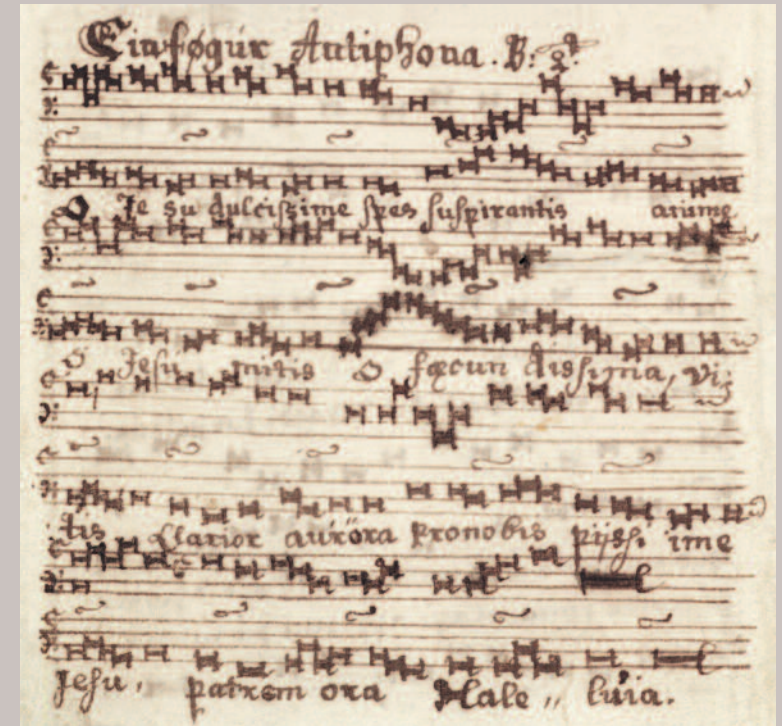 Einføgur Antiphona. B: 2
O Jesu dulcissime spes suspirantis animę
O Jesu mitis O fęcun dissima, vi
tis Clarior aurőra pronobis pijss. ime
Jesu, patrem ora Hale,, luia.